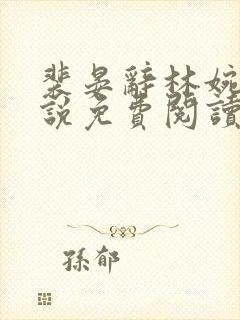 裴晏辭林婉
說免費閱讀
孫郁